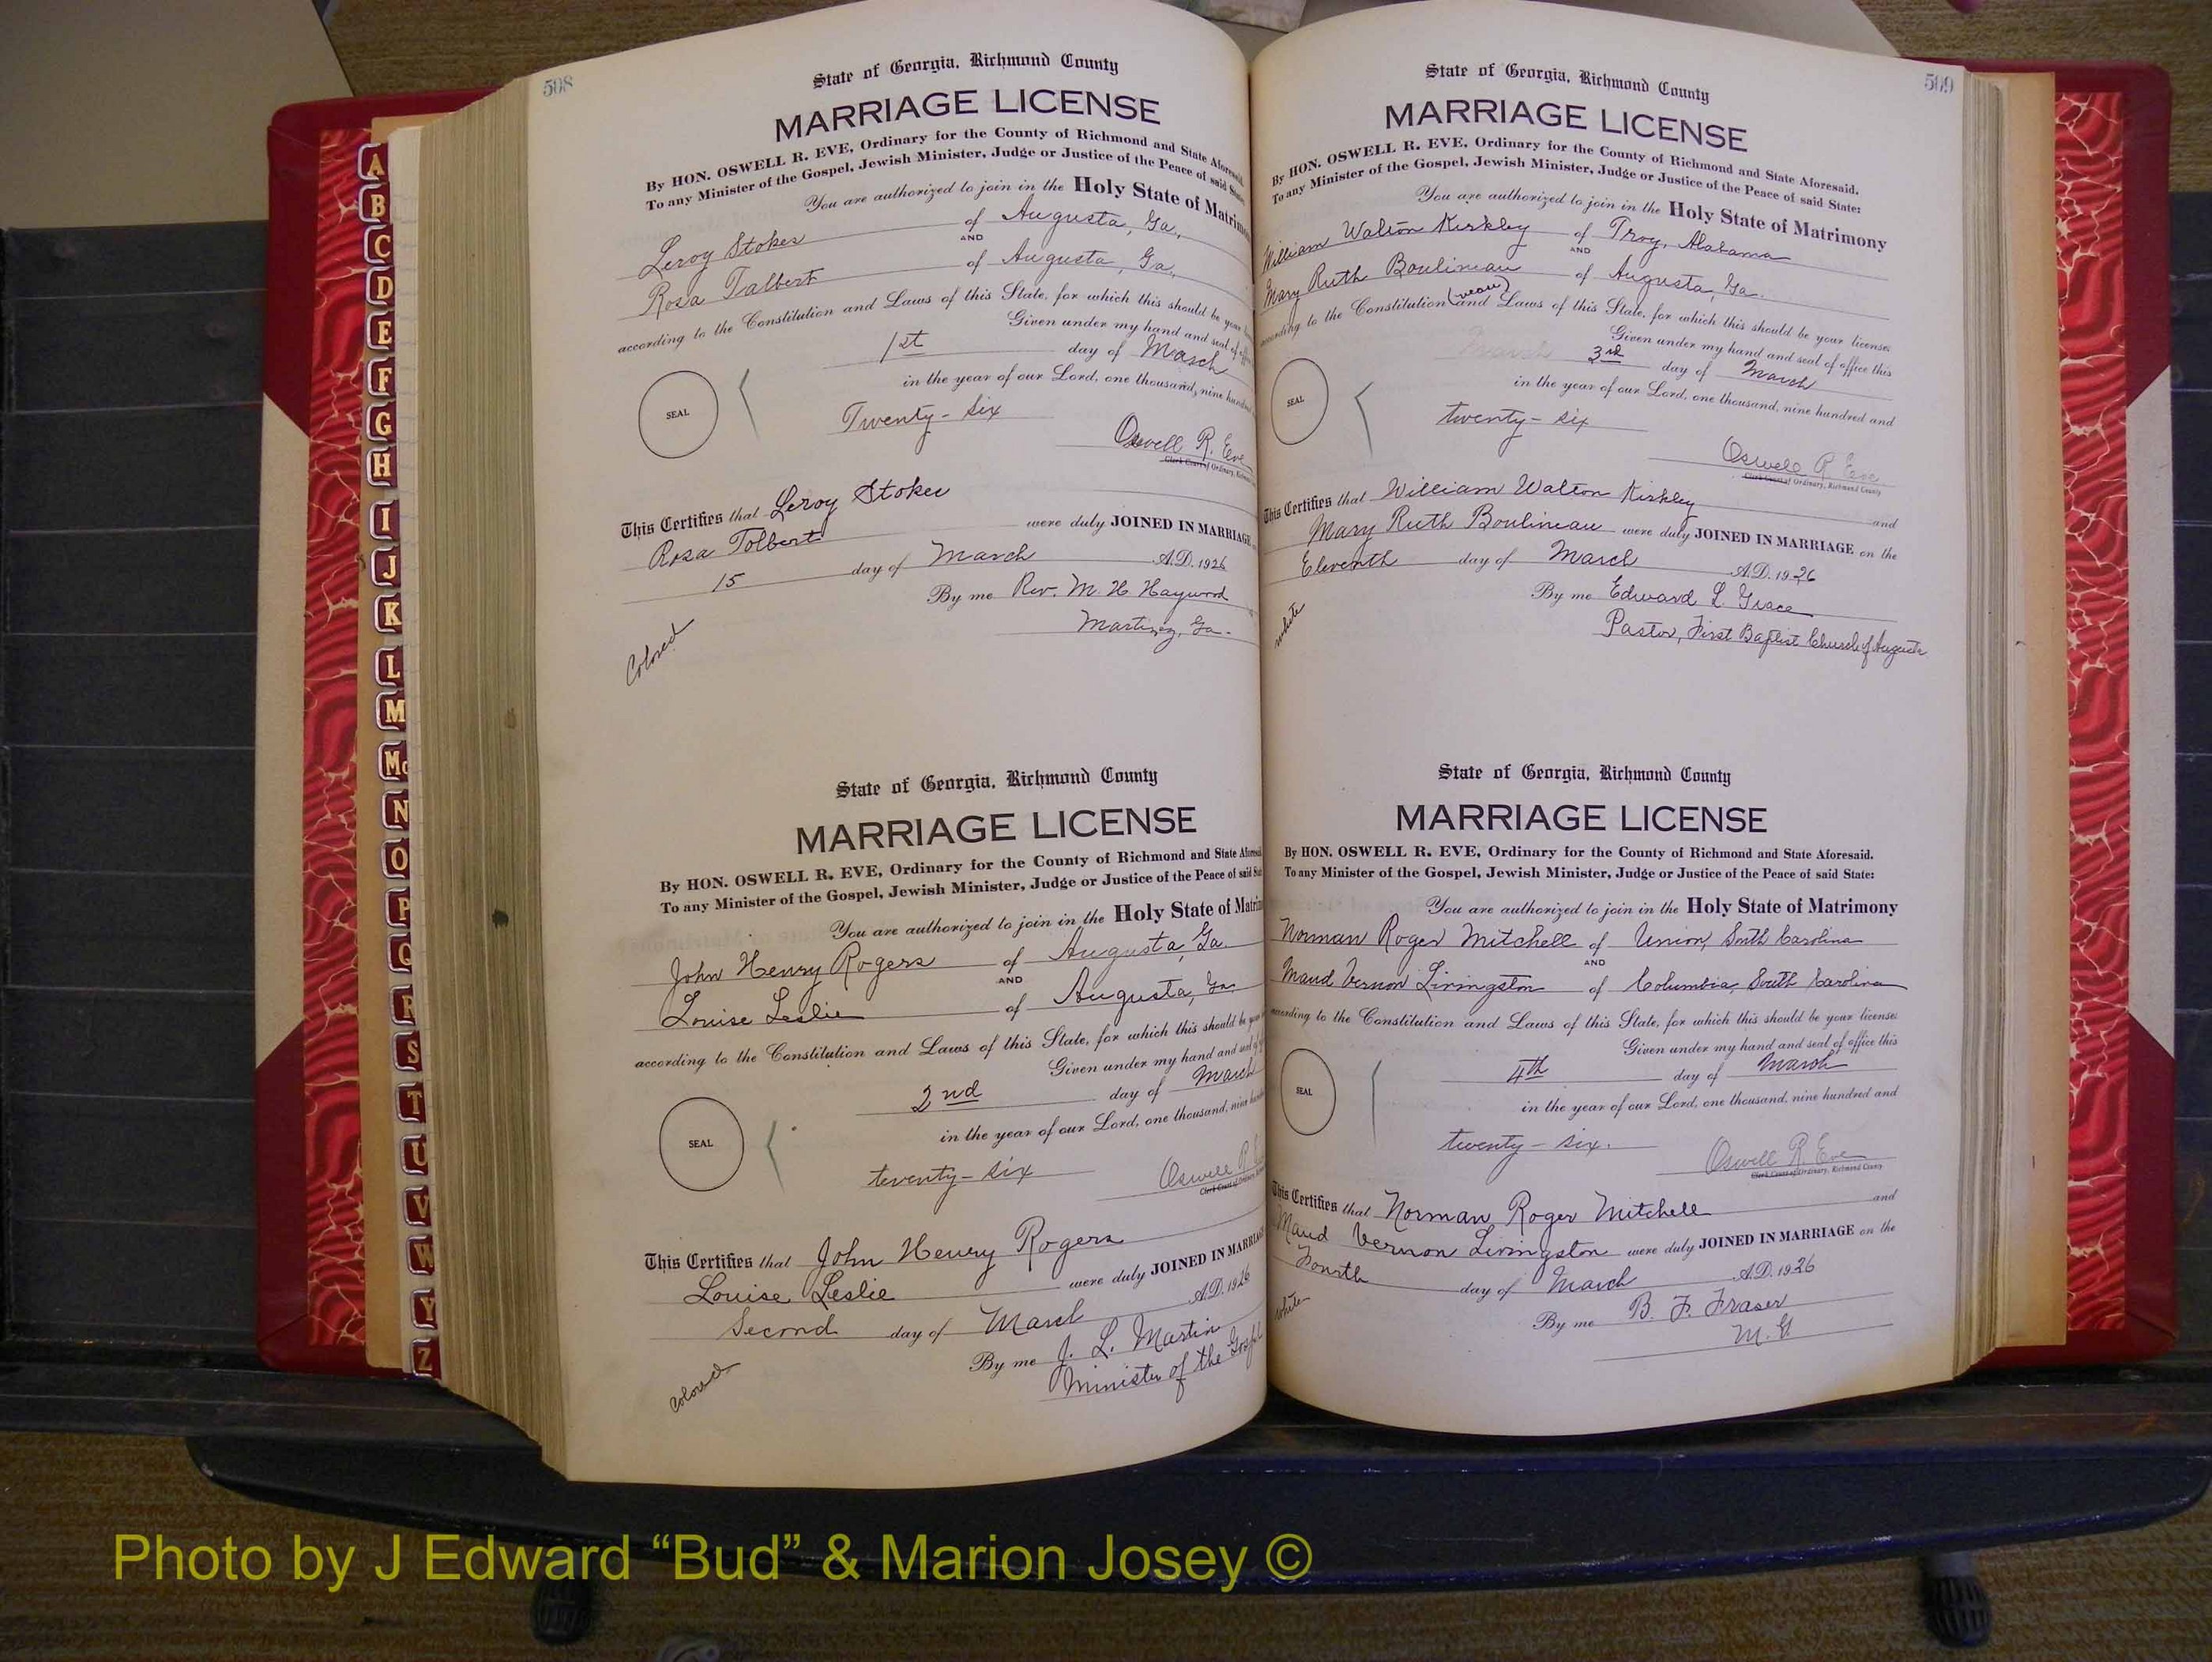 508
State of Georgia, Richmond County
MARRIAGE LICENSE
By HON. OSWELL R. EVE, Ordinary for the County of Richmond and State Aforesaid.
To any Minister of the Gospel, Jewish Minister, Judge or Justice of the Peace of said State:
You are authorized to join in the Holy State of Matrimony
Leroy Stokes of Augusta, Ga.
AND
Rosa Talbert of Augusta, Ga.
according to the Constitution and Laws of this State, for which this should be your
Given under my hand and seal of
1st day of March
in the year of our Lord, one thousand, nine hundred
Twenty-six
SEAL
Oswell R. Eve
Clerk Court of Ordinary,
This Certifies that Leroy Stokes
Rosa Tolbert were duly JOINED IN MARRIAGE
15 day of March A.D. 1926
By me Rev. M. H. Haywood
Martinez, Ga.
Colored
State of Georgia, Richmond County
MARRIAGE LICENSE
By HON. OSWELL R. EVE, Ordinary for the County of Richmond and State Aforesaid
To any Minister of the Gospel, Jewish Minister, Judge or Justice of the Peace of said State
You are authorized to join in the Holy State of Matrim
John Henry Rogers of Augusta, Ga.
AND
Louise Leslie of Augusta, Ga.
according to the Constitution and Laws of this State, for which this should be your
Given under my hand and seal of
2nd day of March
in the year of our Lord, one thousand, nine hundred
twenty-six
SEAL
Oswell R. E
Clerk Court of
This Certifies that John Henry Rogers
Louise Leslie were duly JOINED IN MARRIAGE
Second day of March A.D. 1926
By me J. L. Martin
Minister of the Gospel
Colored
509
State of Georgia, Richmond County
MARRIAGE LICENSE
By HON. OSWELL R. EVE, Ordinary for the County of Richmond and State Aforesaid.
To any Minister of the Gospel, Jewish Minister, Judge or Justice of the Peace of said State:
You are authorized to join in the Holy State of Matrimony
William Walton Kirkley of Troy, Alabama
AND
Mary Ruth Boulineau of Augusta, Ga.
(neau)
according to the Constitution and Laws of this State, for which this should be your license
Given under my hand and seal of office this
March 3rd day of March
in the year of our Lord, one thousand, nine hundred and
twenty-six
SEAL
Oswell R. Eve
Clerk Court of Ordinary, Richmond County
This Certifies that William Walton Kirkley and
Mary Ruth Boulineau were duly JOINED IN MARRIAGE on the
Eleventh day of March A.D. 1926
By me Edward L. Grace
Pastor, First Baptist Church of Augusta
white
State of Georgia, Richmond County
MARRIAGE LICENSE
By HON. OSWELL R. EVE, Ordinary for the County of Richmond and State Aforesaid.
To any Minister of the Gospel, Jewish Minister, Judge or Justice of the Peace of said State:
You are authorized to join in the Holy State of Matrimony
Norman Roger Mitchell of Union, South Carolina
AND
Maud Vernon Livingston of Columbia, South Carolina
according to the Constitution and Laws of this State, for which this should be your license
Given under my hand and seal of office this
4th day of March
in the year of our Lord, one thousand, nine hundred and
twenty-six.
SEAL
Oswell R. Eve
Clerk Court of Ordinary, Richmond County
This Certifies that Norman Roger Mitchell and
Maud Vernon Livingston were duly JOINED IN MARRIAGE on the
Fourth day of March A.D. 1926
By me B. F. Fraser
M. G
White
A
B
C
D
E
F
G
H
I
J
K
L
M
Mc
N
O
P
Q
R
S
T
U
V
W
Y
Z
Photo by J Edward “Bud” & Marion Josey ©